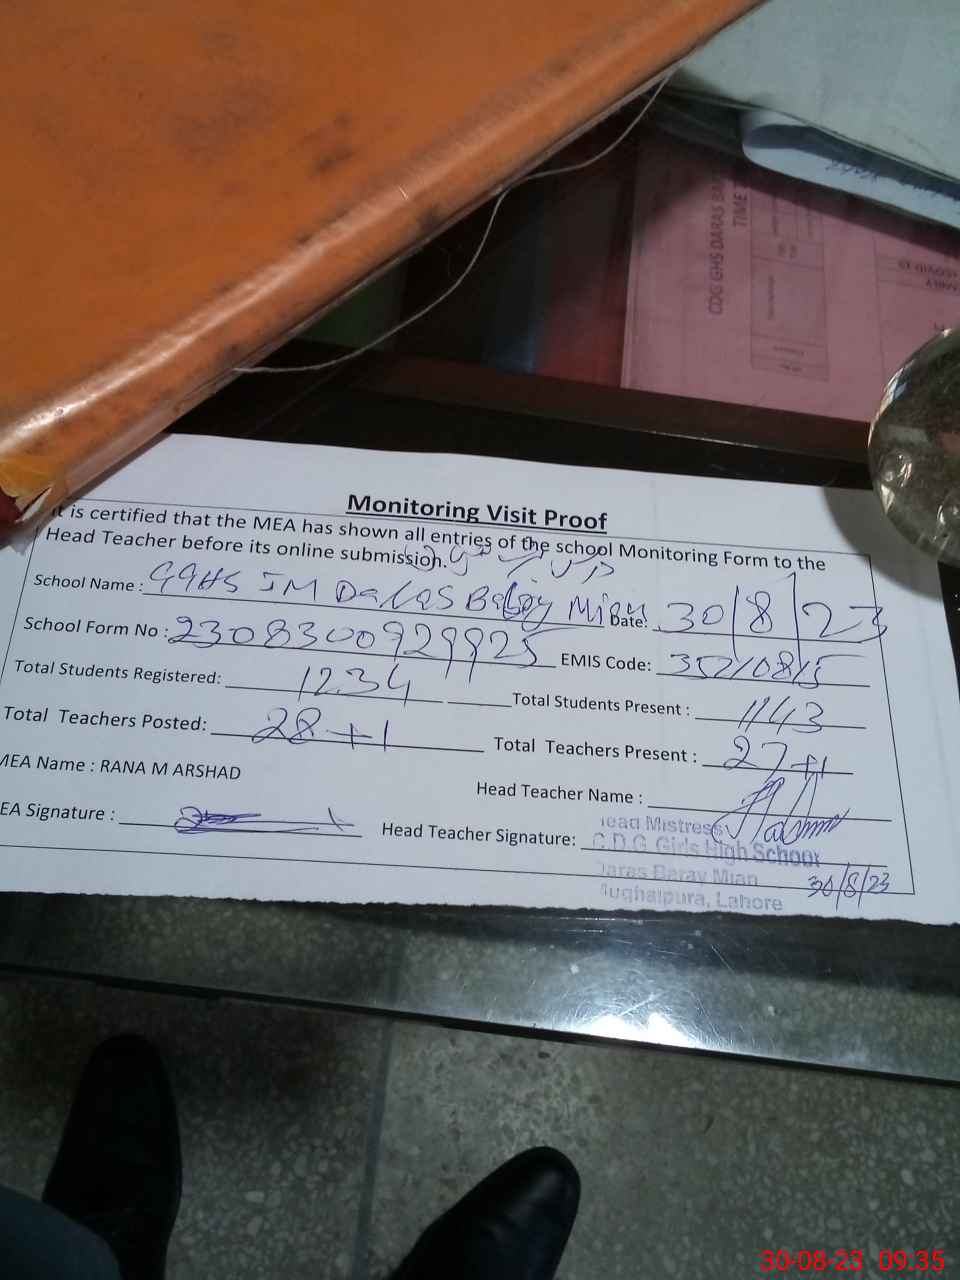 CDG GHS DARAS BA
TIME
COVID 19
Monitoring Visit Proof
It is certified that the MEA has shown all entries of the school Monitoring Form to the
Head Teacher before its online submission.
School Name : GGHS JM Daras Baray Mian Date: 30/8/23
School Form No : 2308300929925 EMIS Code:
Total Students Registered: 1234 Total Students Present : 1143
Total Teachers Posted: 28+1 Total Teachers Present : 27+1
MEA Name : RANA M ARSHAD
Head Teacher Name :
EA Signature : Head Teacher Signature:
Head Mistress
C.D.G Girls High School
Daras Baray Mian 30/8/23
Mughalpura, Lahore
30-08-23 09.35